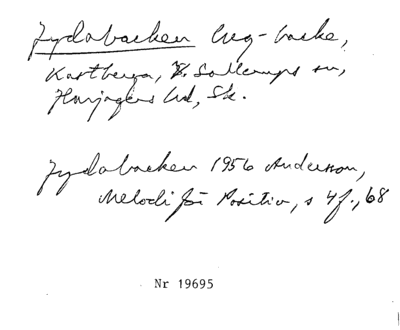 Jydabacken väg-backe,
Kastberga, V. Sallerups sn,
Harjagers hd, Sk.
Jydabacken 1956 Andersson,
Melodi för Positiv, s 4f., 68
Nr 19695